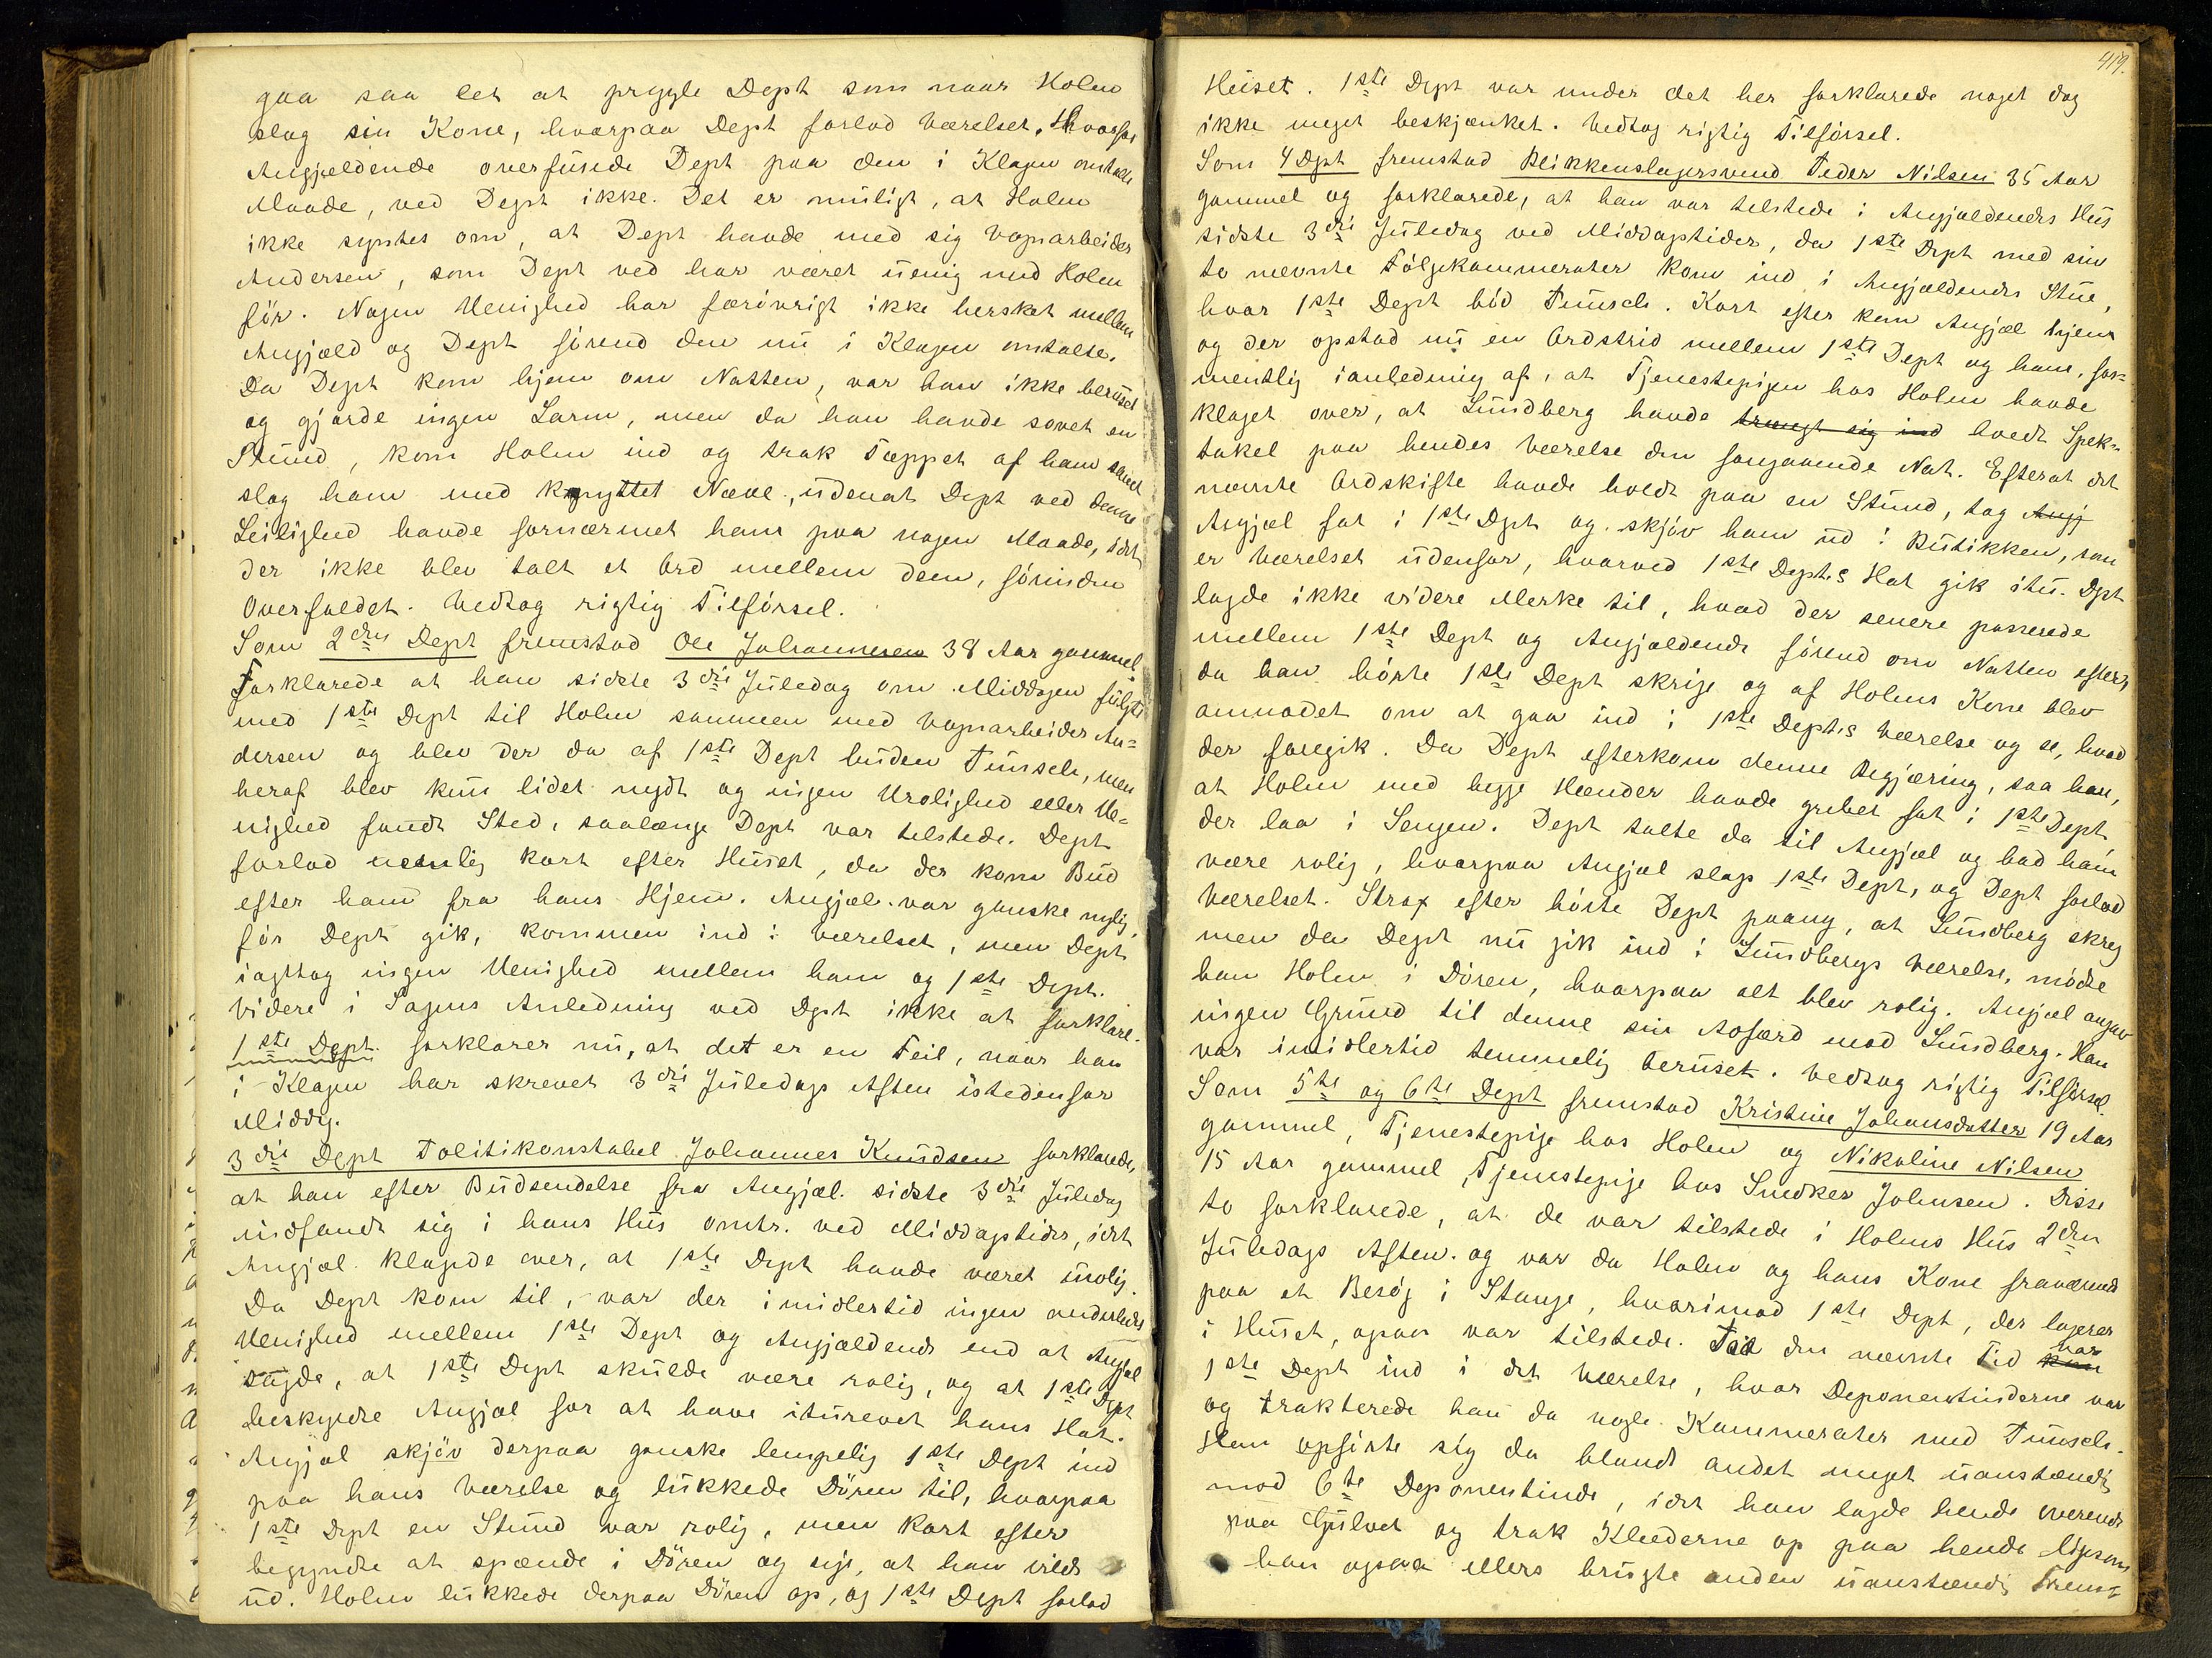 gaa saa let at prygle Dept som naar Holm
slog sin Kone, hvorpaa Dept forlod Værelset. Hvorfor
Angjældende overfusede Dept paa den i Klagen omtalte
Maade, ved Dept ikke. Det er muligt, at Holm
ikke syntes om, at Dept havde med sig Vognarbeider
Andersen, som Dept ved har været uenig med Holm
før. Nogen Uenighed har forøvrigt ikke hersket mellem
Angjæld og Dept førend den nu i Klagen omtalte.
Da Dept kom hjem om Natten, var han ikke beruset
og gjorde ingen Larm, men da han havde sovet en
Stund, kom Holm ind og trak Tæppet af ham samt
slog ham med knyttet Næve, udenat Dept ved denne
Leilighed havde fornærmet ham paa nogen Maade, idet
der ikke blev talt et Ord mellem dem, førinden
Overfaldet. Vedtog rigtig Tilførsel.
Som 2den Dept fremstod Ole Johannesen 38 Aar gammel
Forklarede at han sidste 3die Juledag om Middagen fulgte
med 1ste Dept til Holm sammen med Vognarbeider An=
dersen og blev der da af 1ste Dept buden Punsch, men
heraf blev kun lidet nydt og ingen Urolighed eller Ue=
nighed fandt Sted, saalænge Dept var tilstede. Dept
forlod nemlig kort efter Huset, da der kom Bud
efter ham fra hans Hjem. Angjæl. var ganske nylig,
før Dept gik, kommen ind i Værelset, men Dept
iagttog ingen Uenighed mellem ham og 1ste Dept.
Videre i Sagens Anledning ved Dept ikke at forklare.
1ste Dept. forklarer nu, at det er en Feil, naar han
i Klagen har skrevet 3die Juledags Aften istedenfor
Middg.
3die Dept Politikonstabel Johannes Knudsen forklarede,
at han efter Budsendelse fra Angjæl. sidste 3die Juledag
indfandt sig i hans Hus omtr. ved Middagstider, idet
Angjæl. klagede over, at 1ste Dept havde været urolig.
Da Dept kom til, var der imidlertid ingen anderledes
Uenighed mellem 1ste Dept og Angjældende end at Angjæl
sagde, at 1ste Dept skulde være rolig, og at 1ste Dept
beskyldte Angjæl for at have iturevet hans Hat.
Angjæl skjøv derpaa ganske lempelig 1ste Dept ind
paa hans Værelse og lukkede Døren til, hvorpaa
1ste Dept en Stund var rolig, men kort efter
begyndte at spænde i Døren og sige, at han vilde
ud. Holm lukkede derpaa Døren op, og 1ste Dept forlod
419.
Huset. 1ste Dept var under det her forklarede noget dog
ikke meget beskjænket. Vedtog rigtig Tilførsel.
Som 4 Dept fremstod Blikkenslagersvend Peder Nilsen 35 Aar
gammel og forklarede, at han var tilstede i Angjældendes Hus
sidste 3die Juledag ved Middagstider, da 1ste Dept med sin
to nævnte Følgekammerater kom ind i Angjældendes Stue,
hvor 1ste Dept bød Punsch. Kort efter kom Angjæl hjem
og der opstod nu en Ordstrid mellem 1ste Dept og ham, for=
mentlig ianledning af, at Tjenestepigen hos Holm havde
klaget over, at Lundberg havde trængt sig ind hvedt Spek=
takel paa hendes Værelse den foregaaende Nat. Efterat det
nævnte Ordskifte havde holdt paa en Stund, tog Angj
Angjæl fat i 1ste Dept og skjøv ham ud i Butikken, som
er Værelset udenfor, hvorved 1ste Dept.s Hat gik itu. Dept
lagde ikke videre Merke til, hvad der senere passerede
mellem 1ste Dept og Angjældende førend om Natten efter,
da han hørte 1ste Dept skrige og af Holms Kone blev
anmodet om at gaa ind i 1ste Dept.s Værelse og se, hvad
der foregik. Da Dept efterkom denne Begjæring, saa han,
at Holm med begge Hænder havde grebet fat i 1ste Dept,
der laa i Sengen. Dept talte da til Angjæl og bad ham
være rolig, hvorpaa Angjæl slap 1ste Dept, og Dept forlod
Værelset. Strax efter hørte Dept paany, at Lundberg skreg
men da Dept nu gik ind i Lundbergs Værelse, mødte
han Holm i Døren, hvorpaa alt blev rolig. Angjæl angav
ingen Grund til denne sin Adfærd mod Lundberg. Han
var imidlertid temmelig beruset. Vedtog rigtig Tilførsel.
Som 5te og 6te Dept fremstod Kristine Johansdatter 19 Aar
gammel, Tjenestepige hos Holm og Nikoline Nilsen
15 Aar gammel, Tjenestepige hos Snedker Johnsen. Disse
to forklarede, at de var tilstede i Holms Hus 2den
Juledags Aften og var da Holm og hans Kone fraværende
paa et Besøg i Stange, hvorimod 1ste Dept, der logerer
i Huset, ogsaa var tilstede. Paa den nævnte Tid kom var
1ste Dept ind i det Værelse, hvor Deponentinderne var
og trakterede han da nogle Kammerater med Punsch.
Han opførte sig da blandt andet meget uanstændig
mod 6te Deponentinde, idet han lagde hende overende
paa Gulvet og trak Klæderne op paa hende ligesom
han ogsaa ellers brugte anden uanstændig Frem=